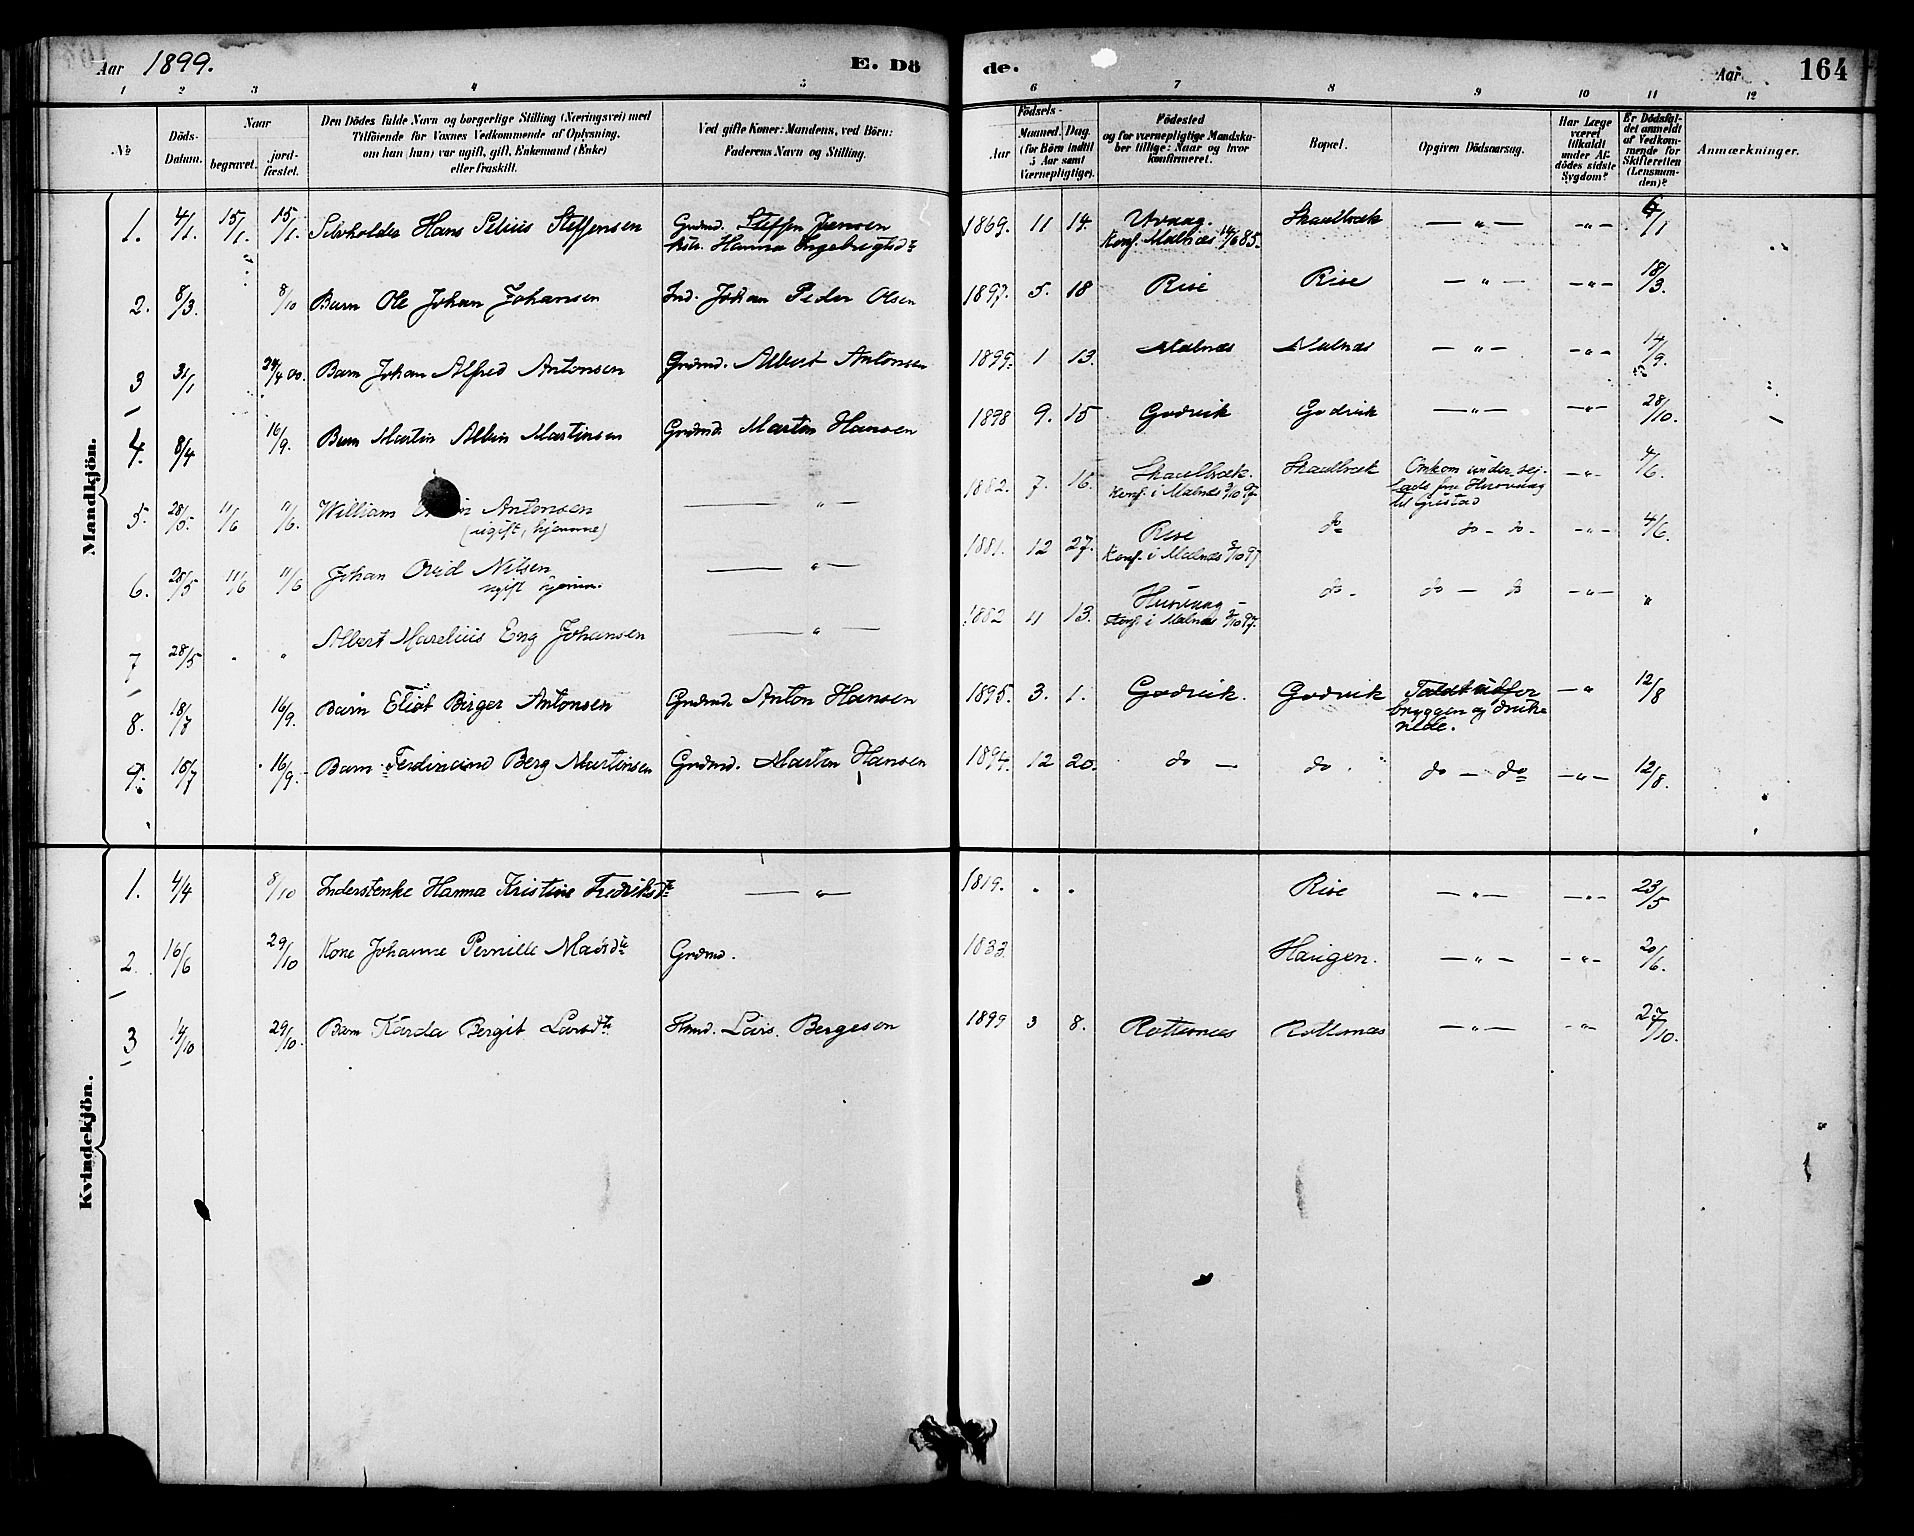 Aar 1899. E. Dö de. Aar 164
1 2 3 4 5 6 7 8 9 10 11 12
№
Döds-Datum.
Naar
begravet.
jord-fæstet.
Den Dödes fulde Navn og borgerlige Stilling (Næringsvei) med
Tilföiende for Voxnes Vedkommende af Oplysning,
om han (hun) var ugift, gift, Enkemand (Enke)
eller fraskilt.
Ved gifte Koner: Mandens, ved Börn:
Faderens Navn og Stilling.
Födsels-
Aar
Maaned. Dag.
(for Börn indtil
5 Aar samt
Værnepligtige).
Födested
og for værnepligtige Mandska-
ber tillige: Naar og hvor
konfirmeret.
Bopæl.
Opgiven Dödsaarsag.
Har Læge
været
tilkaldt
under Af-
dödes sidste
Sygdom?
Er Dödsfal-
det anmeldt
af Vedkom-
mende for
Skifteretten
(Lensman-
den)?
Anmærkninger.
Mandkjön.
1. 4/1. 15/1. 15/1. Selvholder Hans Selius Steffensen Grdmd. Steffen Jensen 1869. 11 14. Skaelbæk — " — — " — 6/1
Hanna Ingebrigtsdtr Konf. Malnæs 14/6 85.
2. 8/3. 8/10 Barn Ole Johan Johansen Ind. Johan Peder Olsen 1897. 5. 18 Rise Rise — " — — " — 18/3.
3 31/1 24/4 00. Barn Johan Alfred Antonsen Grdmd. Albert Antonsen 1899. 1 13. Malnæs Malnæs — " — — " — 14/9.
4. 8/4 16/9. Barn Martin Albin Martinsen Grdmd. Martin Hansen 1898 9. 15 Godvik Godvik — " — — " — 28/10.
5. 28/5. 11/6 11/6. William Antonsen — " — 1882. 7. 16. Skaelbæk. Skaelbæk Omkom under sei-
(ugift, hjemme) Konf. i Malnæs 3/10 97. lads fra Husvaag
til Grustad — " — 4/6.
6. 28/5 11/6 11/6 Johan Ovid Nilsen — " — 1881. 12 27. Rise do do - do - — " — 4/6.
ugift hjemme. Konf. i Malnæs 3/10 97
7 28/5 " " Albert Marelius Eng Johansen — " — 1882 11 13. Husvaag - do - do — do — " — "
Konf. i Malnæs 3/10 97.
8. 18/7 16/9. Barn Eliot Birger Antonsen Grdmd. Anton Hansen 1895. 3. 1. Godvik. Godvik Faldt udfor
bryggen og
nede. — " 12/8
9. 18/7 16/9. Barn Ferdinand Berg Martinsen Grdmd. Martin Hansen 1894. 12 20. do — do. do — do — " — 12/8.
Kvindekjön.
1. 4/4 8/10 Inderstenke Hanna Kristine Fredriksdtr — " — 1819. " " Rise — " — — " — 23/5
2. 16/6 29/10 Kone Johanne Pernille Madsdtr Grdmd. 1833. Haugen. — " — — " — 20/6.
3 14/10 29/10. Barn Karda Bergit Larsdtr Hmd. Lars Bergeson 1899 3 8. Rottenæs Rottenæs — " — — " — 27/10.